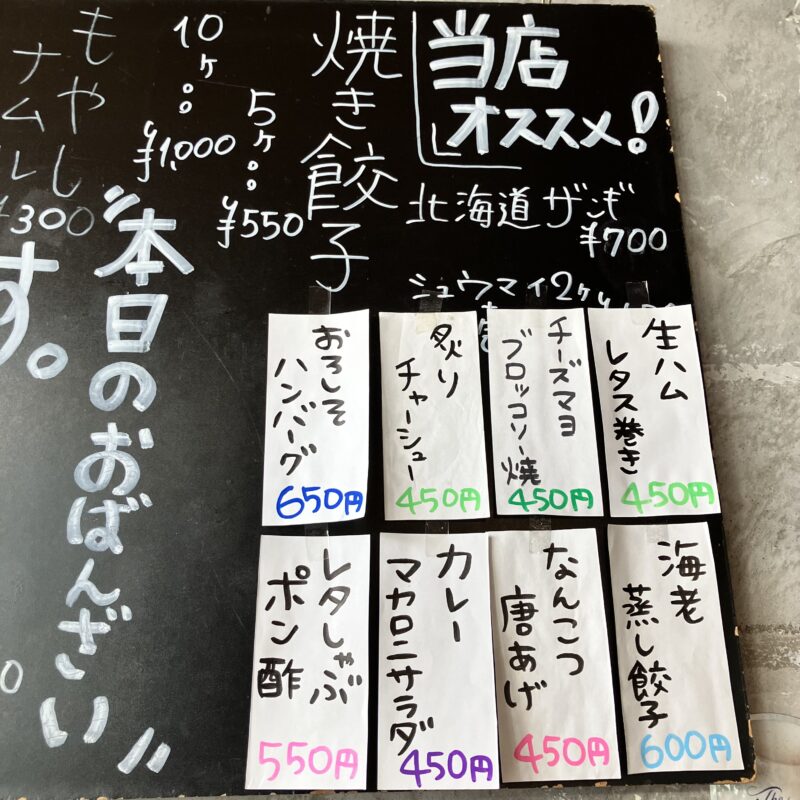 当店
オススメ!
北海道ザンギ
¥700
シュウマイ2ケ
焼き餃子
5ケ
¥550
10ケ
¥1,000
もやし
ナムル
¥300
"本日のおばんざい"
す。
生ハム
レタス巻き
450円
チーズマヨ
ブロッコリー焼
450円
炙り
チャーシュー
450円
おろしそ
ハンバーグ
650円
海老
蒸し餃子
600円
なんこつ
唐あげ
450円
カレー
マカロニサラダ
450円
レタしゃぶ
ポン酢
550円